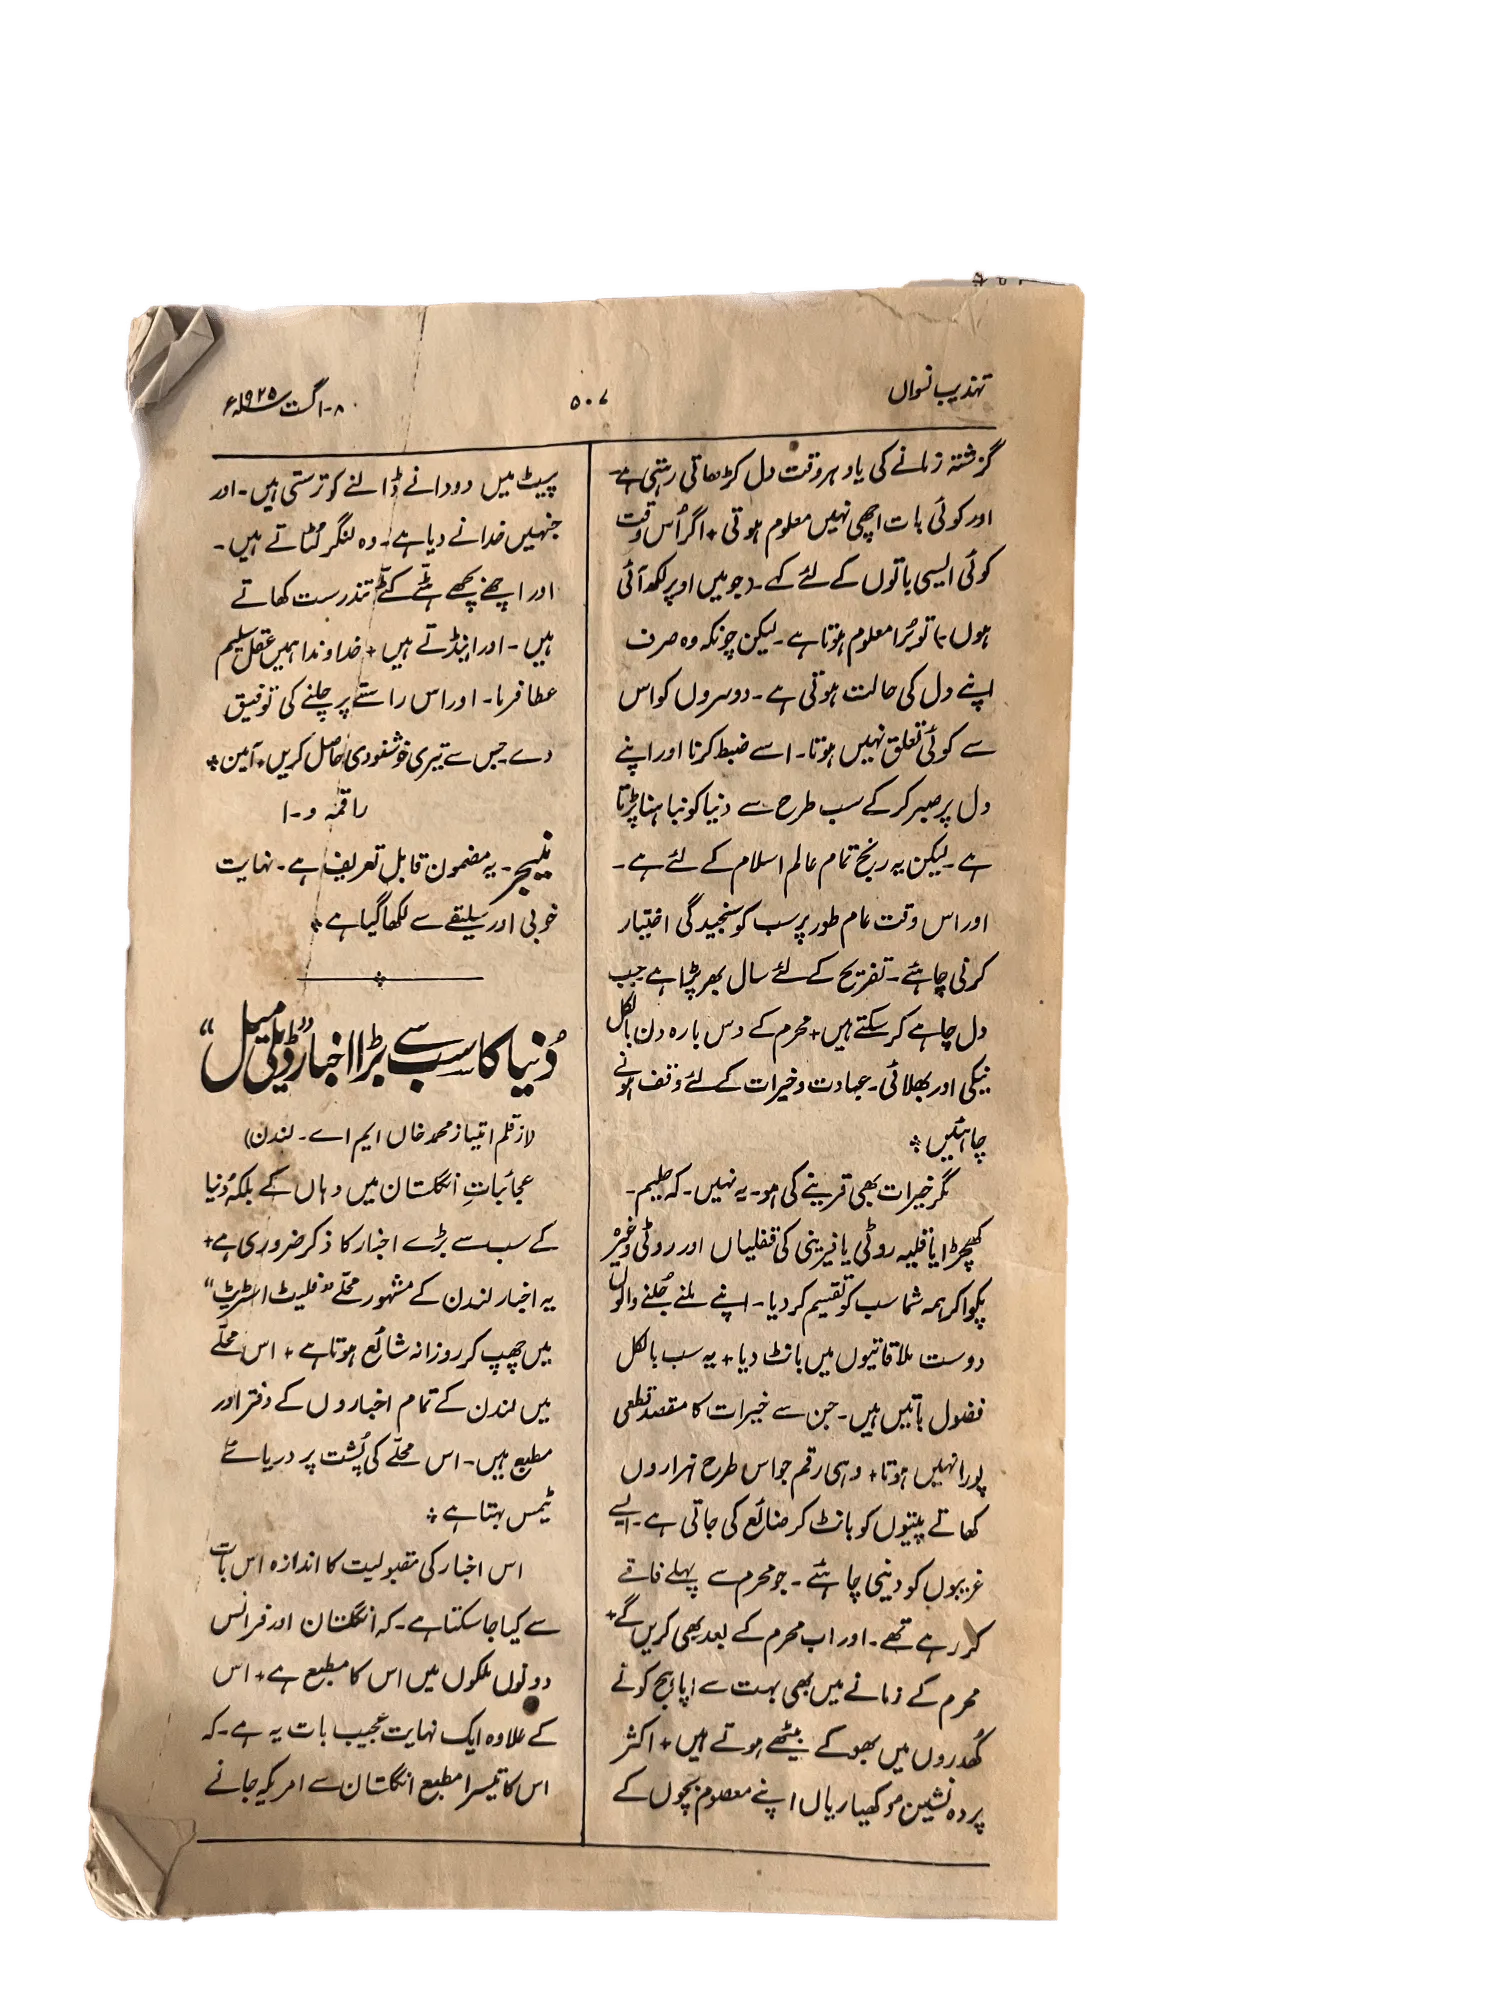 تہذیب نسواں
۵۰۷
۸-اگست ۱۹۲۵ء
گزشتہ زمانے کی یاد ہر وقت دل کڑھاتی رہتی ہے۔
اور کوئی بات اچھی نہیں معلوم ہوتی + اگر اُس وقت
کوئی ایسی باتوں کے لئے کہے۔ (جو میں اوپر لکھ آئی
ہوں) تو بُرا معلوم ہوتا ہے۔ لیکن چونکہ وہ صرف
اپنے دل کی حالت ہوتی ہے۔ دوسروں کو اس
سے کوئی تعلق نہیں ہوتا۔ اسے ضبط کرنا اور اپنے
دل پر صبر کر کے سب طرح سے دنیا کو نباہنا پڑتا
ہے۔ لیکن یہ رنج تمام عالم اسلام کے لئے ہے۔
اور اس وقت عام طور پر سب کو سنجیدگی اختیار
کرنی چاہئے۔ تفریح کے لئے سال بھر پڑا ہے جب
دل چاہے کر سکتے ہیں + محرم کے دس بارہ دن بالکل
نیکی اور بھلائی۔ عبادت و خیرات کے لئے وقف ہونے
چاہئیں ❖
مگر خیرات بھی قرینے کی ہو۔ یہ نہیں۔ کہ حلیم۔
کھچڑا یا قلیہ روٹی یا فیرینی کی قفلیاں اور روٹی وغیرہ
پکوا کر ہمہ شما سب کو تقسیم کر دیا۔ اپنے ملنے جُلنے والوں
دوست ملاقاتیوں میں بانٹ دیا + یہ سب بالکل
فضول باتیں ہیں۔ جن سے خیرات کا مقصد قطعی
پورا نہیں ہوتا + وہی رقم جو اس طرح ہزاروں
کھاتے پیتوں کو بانٹ کر ضائع کی جاتی ہے۔ ایسے
غریبوں کو دینی چاہئے۔ جو محرم سے پہلے فاقے
کر رہے تھے۔ اور اب محرم کے بعد بھی کریں گے +
محرم کے زمانے میں بھی بہت سے اپاہج کونے
کھُدروں میں بھوکے بیٹھے ہوتے ہیں + اکثر
پردہ نشین موکھیاریاں اپنے معصوم بچوں کے
پیٹ میں دو دانے ڈالنے کو ترستی ہیں۔ اور
جنہیں خدا نے دیا ہے۔ وہ لنگر لُٹاتے ہیں۔
اور اچھے بچھے ہٹّے کٹّے تندرست کھاتے
ہیں۔ اور اینڈتے ہیں + خداوندا ہمیں عقل سلیم
عطا فرما۔ اور اس راستے پر چلنے کی توفیق
دے جس سے تیری خوشنودی حاصل کریں۔ آمین ❖
راقمہ و-ا
منیجر۔ یہ مضمون قابل تعریف ہے۔ نہایت
خوبی اور سلیقے سے لکھا گیا ہے ❖
دُنیا کا سب سے بڑا اخبار "ڈیلی میل"
(از قلم امتیاز محمد خاں ایم اے۔ لندن)
عجائباتِ انگلستان میں وہاں کے بلکہ دُنیا
کے سب سے بڑے اخبار کا ذکر ضروری ہے +
یہ اخبار لندن کے مشہور محلّے "فلیٹ اسٹریٹ"
میں چھپ کر روزانہ شائع ہوتا ہے + اس محلّے
میں لندن کے تمام اخباروں کے دفتر اور
مطبع ہیں۔ اس محلّے کی پُشت پر دریائے
ٹیمس بہتا ہے ❖
اس اخبار کی مقبولیت کا اندازہ اس بات
سے کیا جا سکتا ہے۔ کہ انگلستان اور فرانس
دونوں ملکوں میں اس کا مطبع ہے + اس
کے علاوہ ایک نہایت عجیب بات یہ ہے۔ کہ
اس کا تیسرا مطبع انگلستان سے امریکہ جانے